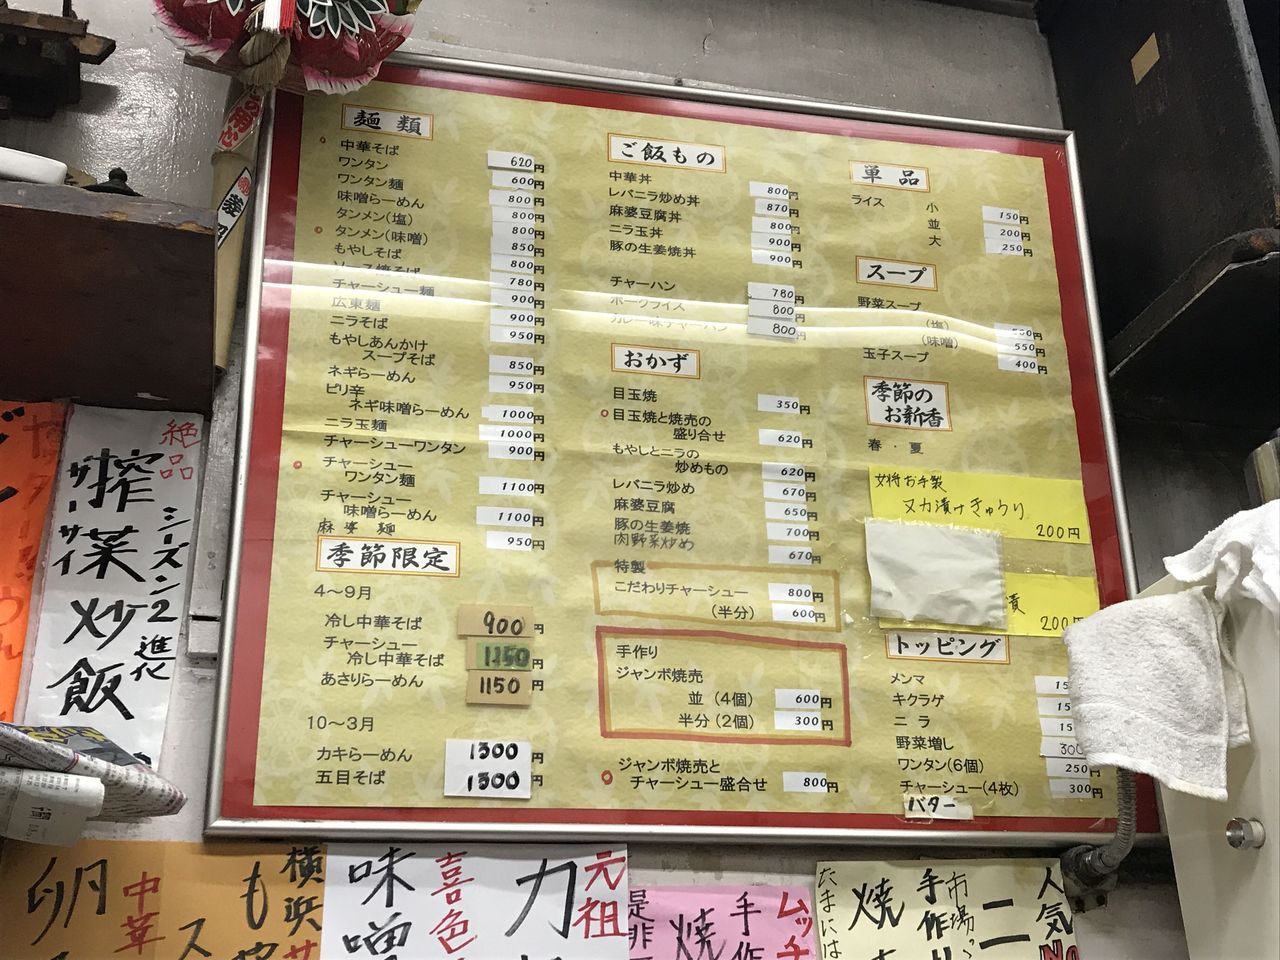 麺類
中華そば 620円
ワンタン 600円
ワンタン麺 800円
味噌らーめん 800円
タンメン(塩) 800円
タンメン(味噌) 850円
もやしそば 800円
780円
チャーシュー麺 900円
広東麺 900円
ニラそば 950円
もやしあんかけ
スープそば 850円
ネギらーめん 950円
ピリ辛
ネギ味噌らーめん 1000円
ニラ玉麺 1000円
チャーシューワンタン 900円
チャーシュー
ワンタン麺 1100円
チャーシュー
味噌らーめん 1100円
麻婆麺 950円
季節限定
4〜9月
冷し中華そば 900円
チャーシュー
冷し中華そば 1150円
あさりらーめん 1150円
10〜3月
カキらーめん 1300円
五目そば 1300円
ご飯もの
中華丼 800円
レバニラ炒め丼 870円
麻婆豆腐丼 800円
ニラ玉丼 900円
豚の生姜焼丼 900円
チャーハン 780円
ポークライス 800円
カレー味チャーハン 800円
おかず
目玉焼 350円
目玉焼と焼売の
盛り合せ 620円
もやしとニラの
炒めもの 620円
レバニラ炒め 670円
麻婆豆腐 650円
豚の生姜焼 700円
肉野菜炒め 670円
特製
こだわりチャーシュー 800円
(半分) 600円
手作り
ジャンボ焼売
並(4個) 600円
半分(2個) 300円
ジャンボ焼売と
チャーシュー盛合せ 800円
単品
ライス 小 150円
並 200円
大 250円
スープ
野菜スープ
(塩) 550円
(味噌) 550円
玉子スープ 400円
季節の
お新香
春・夏
女将お手製
ヌカ漬けきゅうり
200円
漬
200円
トッピング
メンマ
キクラゲ
ニラ
野菜増し 300
ワンタン(6個) 250円
チャーシュー(4枚) 300円
バター
絶品
搾菜炒飯
ザーサイ
シーズン2進化
卵
中華
ス
横浜
味噌
喜色
力
元祖
是非
焼
手作
ムッチ
たまには
焼
手作り
市場
人気No